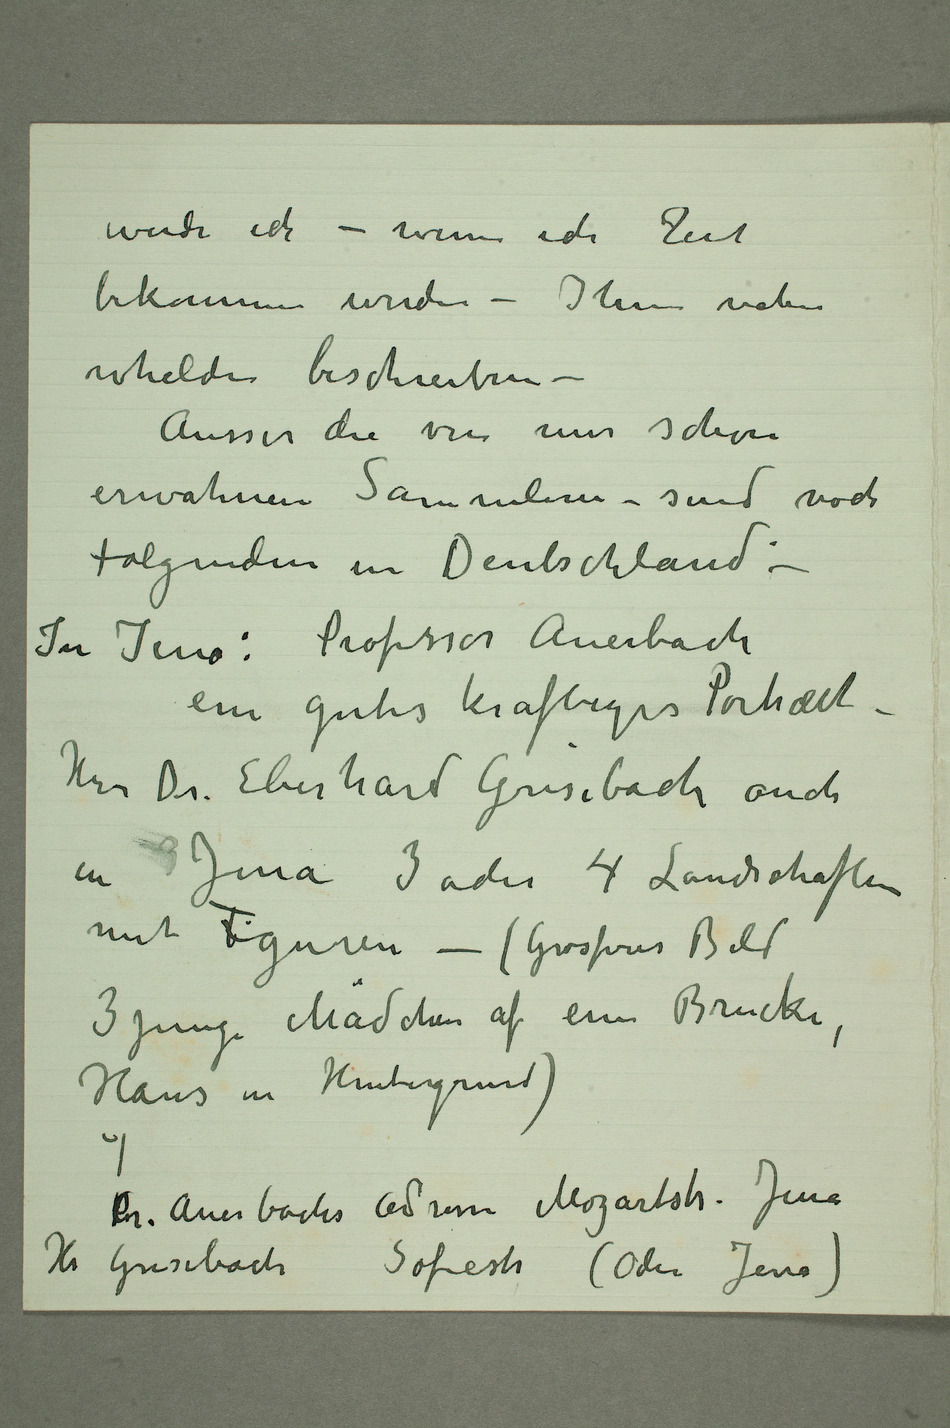 werde ich – wenn ich Zeit
bekommen werden – Ihnen
beschreiben –
Ausser die von mir schon
erwähnen Sammlern – sind noch
Folgenden in Deutschland: –
In Jena: Professor Auerbach
ein gutes kräftiges Portræt –
Herr Dr. Eberhard Grisebach auch
in Jena 3 oder 4 Landschaften
mit Figuren — (Grosses Bild
3 junge Mädchen af eine Brücke,
Haus in Hintergrund)
Dr. Auerbachs Adresse Mozartstr. Jena
Hr Grisebach Sofiestr (Oder Jena)